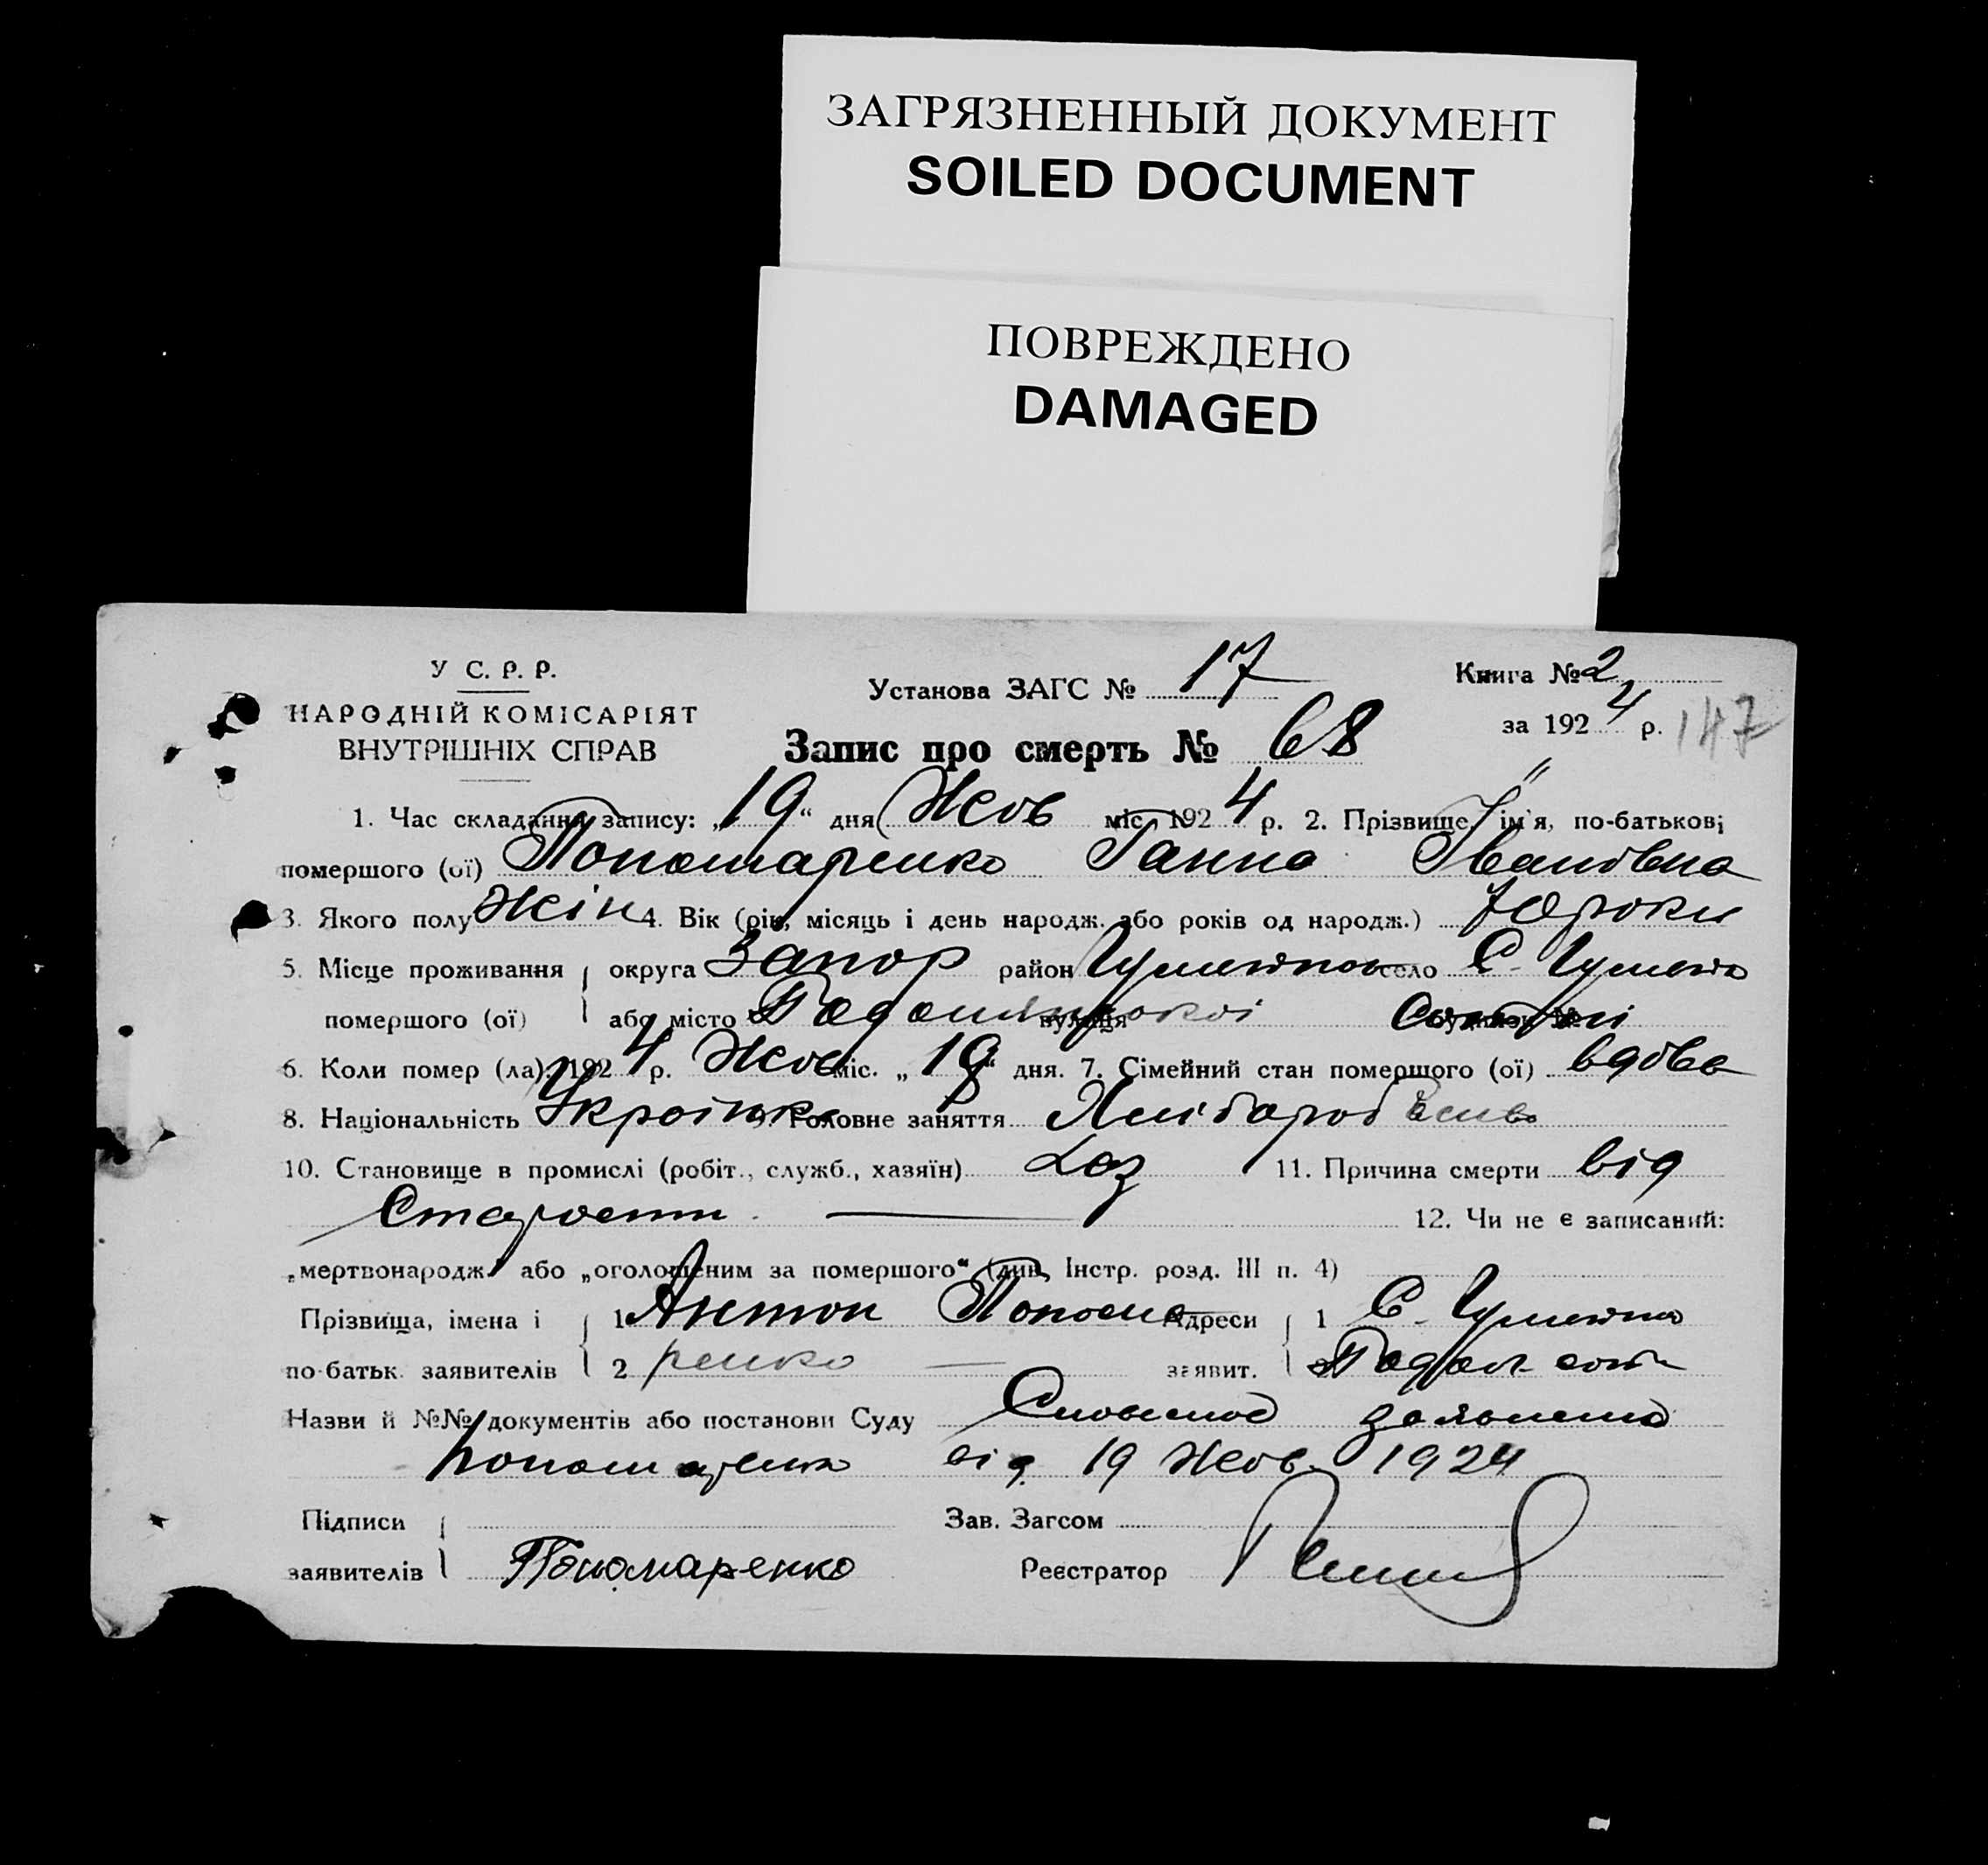 ЗАГРЯЗНЕННЫЙ ДОКУМЕНТ
SOILED DOCUMENT
ПОВРЕЖДЕНО
DAMAGED
У С. Р. Р.
НАРОДНІЙ КОМІСАРІЯТ
ВНУТРІШНІХ СПРАВ
Установа ЗАГС № 17
Книга № 2
за 1924 р. 147
Запис про смерть № 68
1. Час складання запису: „19“ дня Жов міс. 1924 р. 2. Прізвище, ім'я, по-батькові
помершого (ої) Пономаренко Ганна Івановна
3. Якого полу Жін 4. Вік (рік, місяць і день народж. або років од народж.) 70 роки
5. Місце проживання округа Запор район село С.
помершого (ої) або місто вулиця Сотні
6. Коли помер (ла): 1924 р. Жов міс. „19“ дня. 7. Сімейний стан помершого (ої) вдова
8. Національність Українка 9. Головне заняття
10. Становище в промислі (робіт., служб., хазяїн) Хаз 11. Причина смерти від
Старости 12. Чи не є записаний:
„мертвонародж.“ або „оголошеним за помершого“ (див. Інстр. розд. III п. 4)
Прізвища, імена і 1 Антон Понома Адреси 1 С.
по-батьк. заявителів 2 ренко заявит. 2
Назви й №№ документів або постанови Суду
від 19 Жов. 1924
Підписи Зав. Загсом
заявителів Пономаренко Реєстратор